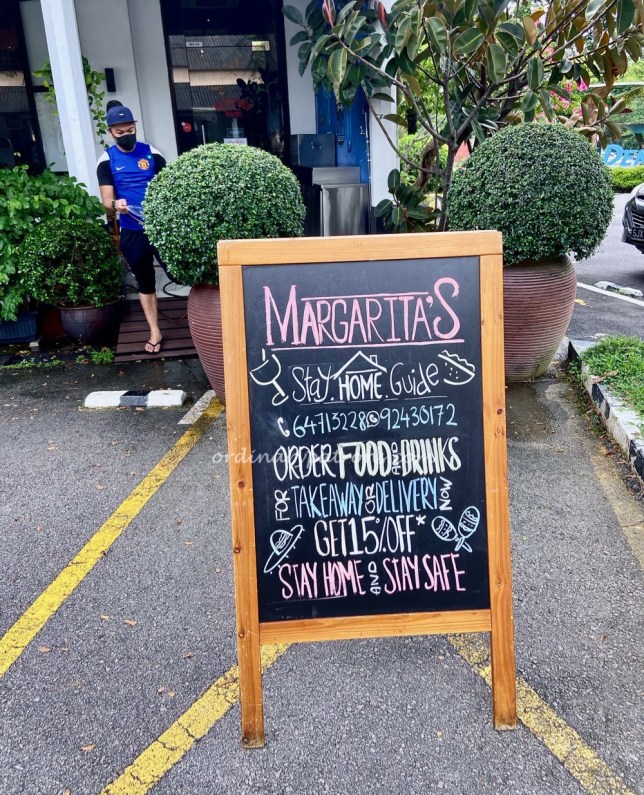 MARGARITA'S
Stay HOME Guide
64713228 92430172
ORDER FOOD AND DRINKS
FOR TAKEAWAY OR DELIVERY NOW
GET 15% OFF*
STAY HOME AND STAY SAFE